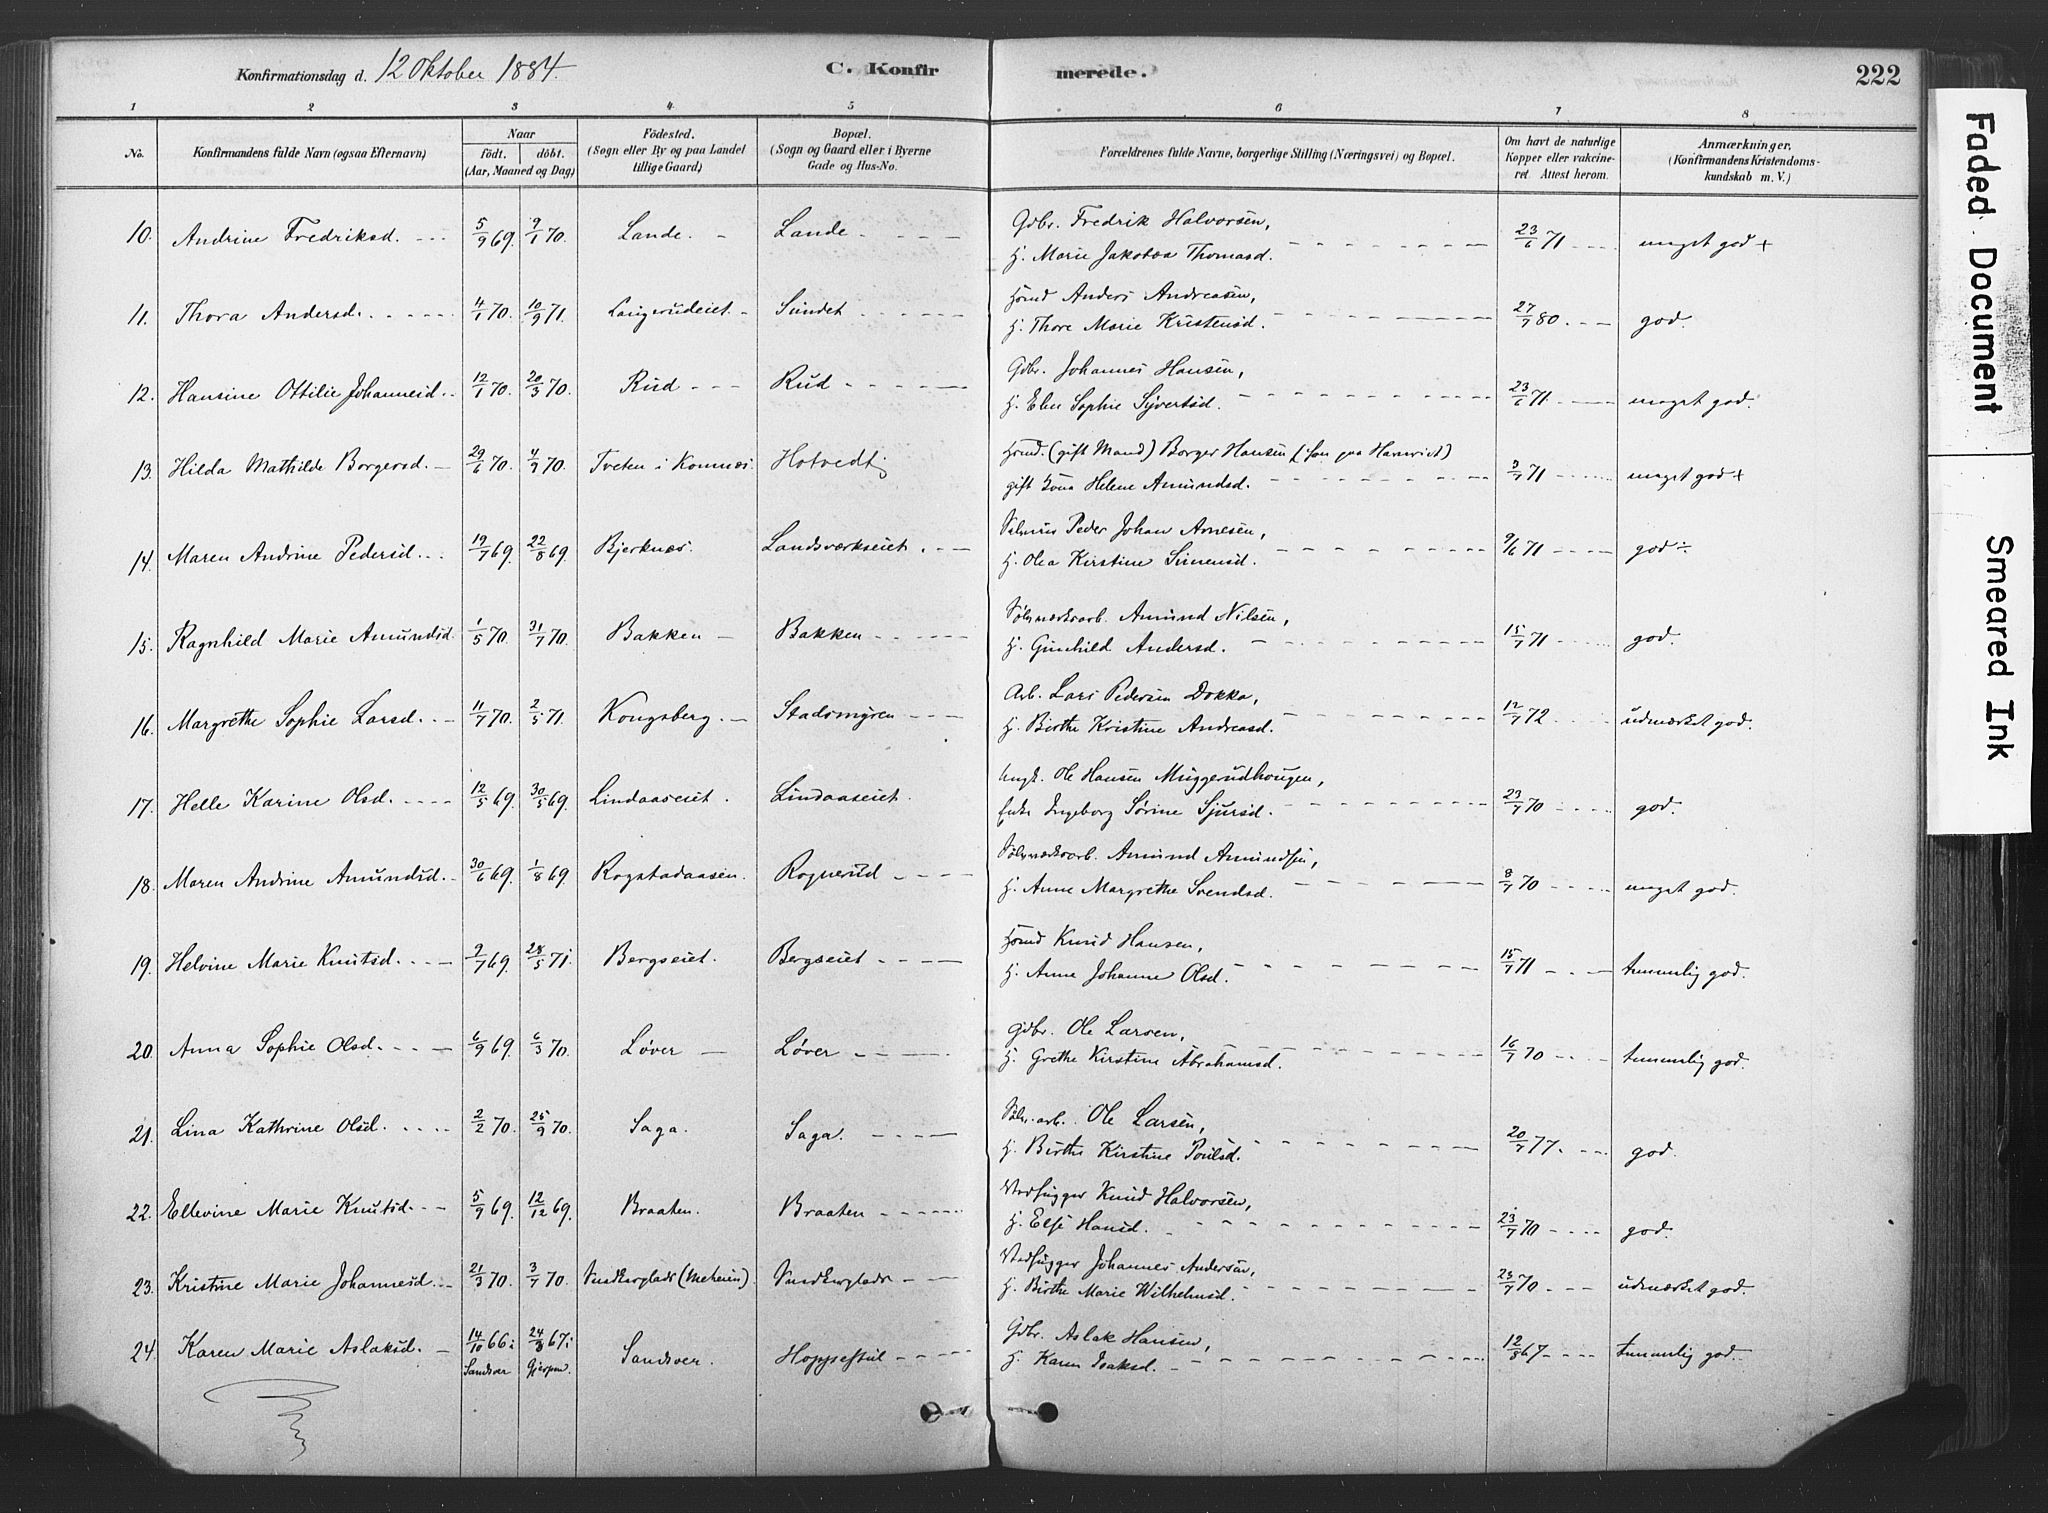 Konfirmationsdag d. 12 Oktober 1884.
C. Konfirmerede.
222
1 2 3 4. 5 6 7 8
No.
Konfirmandens fulde Navn (ogsaa Efternavn)
Naar
födt. döbt.
(Aar, Maaned og Dag)
Födested.
(Sogn eller By og paa Landet
tillige Gaard)
Bopæl.
(Sogn og Gaard eller i Byerne
Gade og Hus-No.
Forældrenes fulde Navne, borgerlige Stilling (Næringsvei) og Bopæl.
Om havt de naturlige
Kopper eller vakcine-
ret. Attest herom.
Anmærkninger.
(Konfirmandens Kristendoms-
kundskab m. V.)
10. Andrine Fredriksd. 5/9 69. 9/1 70. Lande. Lande Gdbr. Fredrik Halvorsen, 23/6 71 meget god +
H. Marie Jakobea Thomasd.
11. Thora Andersd. 4/1 70. 10/9 71. Langerudeiet Sundet Hsmd Anders Andreasen, 27/7 80. god.
H. Thore Marie Kristensd.
12. Hansine Ottilie Johannesd. 12/1 70. 20/3 70. Rud Rud Gdbr. Johannes Hansen, 23/6 71. meget god.
H. Else Sophie Syvertsd.
13. Hilda Mathilde Borgersd. 29/6 70. 4/9 70. Tveten i Komnæs. Hotvedt Hsmd. (gift Mand) Borger Hansen 3/7 71 meget god +
gift Kona Helene Amundsd.
14. Maren Andrine Pedersd. 19/7 69. 22/8 69. Bjerknæs. Landsværkseiet Peder Johan Arnesen, 9/6 71 god ÷
H. Olea Kirstine Simensd.
15. Ragnhild Marie Amundsd. 1/5 70. 31/7 70. Bakken Bakken Sølvværksarb. Amund Nilsen, 15/7 71 god.
H. Gunhild Andersd.
16. Margrethe Sophie Larsd. 11/7 70. 2/5 71. Kongsberg. Stadsmyren Arb. Lars Pedersen Dokka, 12/7 72 udmærket god.
H. Birthe Kristine Andreasd.
17. Helle Karine Olsd. 12/5 69. 30/5 69. Lindaaseiet. Lindaaseiet. Ungk. Ole Hansen Muggerudhougen, 23/7 70 god.
Enke Ingeborg Sørine Sjursd.
18. Maren Andrine Amundsd. 30/6 69. 1/8 69. Rogstadaasen. Rognerud Sølvværksarb. Amund Amundsen, 8/7 70 meget god.
H. Anne Margrethe Svendsd.
19. Helvine Marie Knutsd. 9/7 69. 28/5 71. Bergseiet. Bergseiet Hsmd Knud Hansen, 15/7 71 temmelig god.
H. Anne Johanne Olsd.
20. Anna Sophie Olsd. 6/9 69. 6/3 70. Løver Løver Gdbr. Ole Larsen, 16/7 70 temmelig god.
H. Grethe Kirstine Abrahamsd.
21. Lina Kathrine Olsd. 2/2 70. 25/9 70. Saga. Saga. Sølv.arb. Ole Larsen, 20/7 77. god.
H. Birthe Kirstine Poulsd.
22. Ellevine Marie Knutsd. 5/9 69. 12/12 69. Braaten. Braaten Vedhugger Knud Halvorsen, 23/7 70 god.
H. Else Hansd.
23. Kristine Marie Johannesd. 21/3 70. 3/7 70. (Meheien) Vedhugger Johannes Andersen, 23/7 70 udmærket god.
H. Birthe Marie Wilhelmsd.
24. Karen Marie Aslaksd. 14/10 66 i Sandsver 24/3 67 i Gjerpen Sandsver. Hoppestul Gdbr. Aslak Hansen, 12/8 67 temmelig god.
H. Karen Isaksd.
Faded Document
Smeared Ink